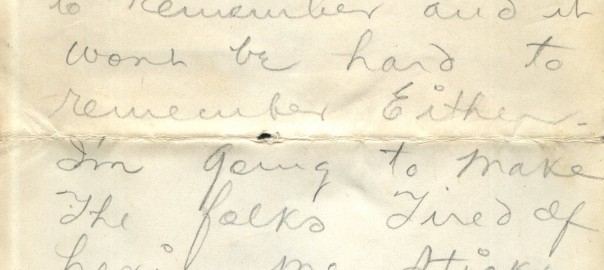 to remember and it
wont be hard to
remember Either.
I'm going to make
The folks Tired of
me